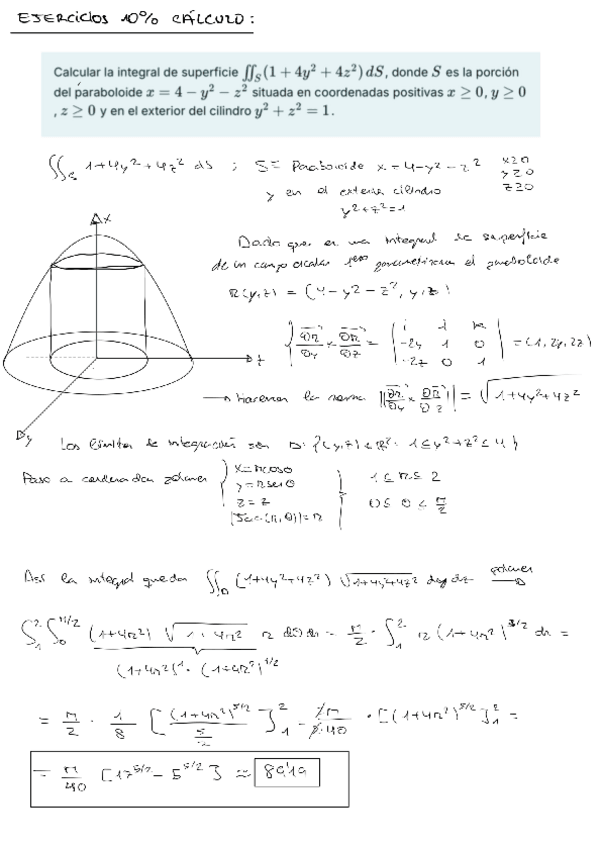 EJERCICIOS 10% CÁLCULO:
Calcular la integral de superficie ∬_S (1 + 4y² + 4z²) dS, donde S es la porción
del paraboloide x = 4 − y² − z² situada en coordenadas positivas x ≥ 0, y ≥ 0
, z ≥ 0 y en el exterior del cilindro y² + z² = 1.
∬_S 1+4y²+4z² dS ; S = Paraboloide x = 4-y²-z² x≥0
y en el exterior cilindro y≥0
y²+z²=1 z≥0
X
Dado que es una integral de superficie
de un campo escalar parametrizamos el paraboloide
R(y,z) = (4-y²-z², y, z)
| i j k |
∂R/∂y × ∂R/∂z = | -2y 1 0 | = (1, 2y, 2z)
| -2z 0 1 |
→ Haremos la norma ||∂R/∂y × ∂R/∂z|| = √1+4y²+4z²
y
Los límites de integración son D: {(y,z) ∈ R²: 1≤y²+z²≤4}
Paso a coordenadas polares { x=r cosθ } 1≤r≤2
y=r senθ
z=z 0≤θ≤π/2
|Jac(r,θ)|=r
Así la integral queda ∬_D (1+4y²+4z²) √1+4y²+4z² dy dz polares →
∫₁² ∫₀^π/2 (1+4r²) √1+4r² r dθ dr = π/2 · ∫₁² r (1+4r²)^3/2 dr =
(1+4r²)¹ · (1+4r²)^1/2
= π/2 · 1/8 [ (1+4r²)^5/2 / 5/2 ]₁² = · [(1+4r²)^5/2]₁² =
= π/40 [17^5/2 - 5^5/2] ≈ 89'19